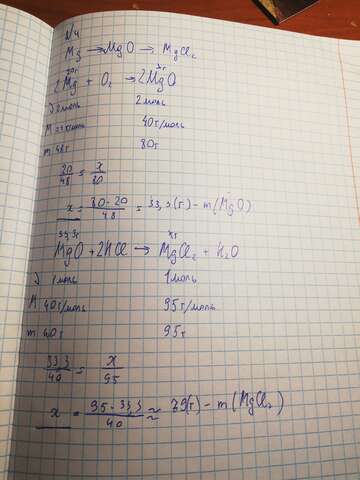 N4
Mg → MgO → MgCl₂
20г xг
2Mg + O₂ → 2MgO
ν 2моль 2моль
M 40г/моль
m 48г 80г
20/48 = x/80
x = 80·20/48 = 33,3(г) - m(MgO)
33,3г xг
MgO + 2HCl → MgCl₂ + H₂O
ν 1моль 1моль
M 40г/моль 95г/моль
m 40г 95г
33,3/40 = x/95
x = 95·33,3/40 ≈ 79(г) - m(MgCl₂)